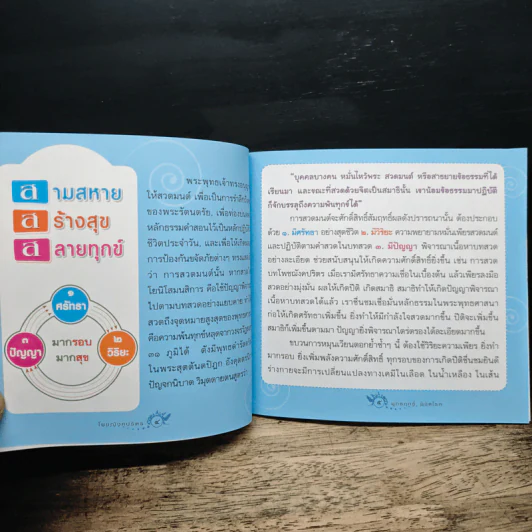 สามสหาย
สร้างสุข
สลายทุกข์
๑
ศรัทธา
๓
ปัญญา
มากรอบ
มากสุข
๒
วิริยะ
พระพุทธเจ้าทรง
ให้สวดมนต์ เพื่อเป็นการรำลึก
ของพระรัตนตรัย, เพื่อท่อง
หลักธรรมคำสอนไว้เป็นหลักปฏิ
ชีวิตประจำวัน, และเพื่อให้เกิด
การป้องกันขจัดภัยต่างๆ
ว่า การสวดมนต์นั้น หากสวด
โยนิโสมนสิการ คือใช้ปัญญา
ไปตามบทสวดอย่างแยบคาย
สวดถึงจุดหมายสูงสุดของพุทธ
คือความพ้นทุกข์หลุดจาก
๓๑ ภูมิได้ ดังมีพุทธดำรัส
ในพระสุตตันตปิฎก อังคุตตร
ปัญจกนิบาต วิมุตตายตนสูตร
"บุคคลบางคน หมั่นไหว้พระ สวดมนต์ หรือสาธยายข้อธรรมที่ได้
เรียนมา และขณะที่สวดด้วยจิตเป็นสมาธินั้น เขาน้อมข้อธรรมมาปฏิบัติ
ก็จักบรรลุถึงความพ้นทุกข์ได้"
การสวดมนต์จะศักดิ์สิทธิ์สัมฤทธิ์ผลดังปรารถนานั้น ต้องประกอบ
ด้วย ๑. มีศรัทธา อย่างสุดชีวิต ๒. มีวิริยะ ความพยายามหมั่นเพียรสวดมนต์
และปฏิบัติตามคำสวดในบทสวด ๓. มีปัญญา พิจารณาเนื้อหาบทสวด
อย่างละเอียด ช่วยสนับสนุนให้เกิดความศักดิ์สิทธิ์ยิ่งขึ้น เช่น การสวด
บทโพชฌังคปริตร เมื่อเรามีศรัทธาความเชื่อในเบื้องต้น แล้วเพียรลงมือ
สวดอย่างมุ่งมั่น ผลให้เกิดปีติ เกิดสมาธิ สมาธิทำให้เกิดปัญญาพิจารณา
เนื้อหาบทสวดได้แล้ว เราชื่นชมเชื่อมั่นหลักธรรมในพระพุทธศาสนา
ก่อให้เกิดศรัทธาเพิ่มขึ้น ยิ่งทำให้มีกำลังใจสวดมากขึ้น ปีติจะเพิ่มขึ้น
สมาธิก็เพิ่มขึ้นตามมา ปัญญายิ่งพิจารณาไตร่ตรองได้ละเอียดมากขึ้น
ขบวนการหมุนเวียนตอกย้ำซ้ำๆ นี้ ต้องใช้วิริยะความเพียร ยิ่งทำ
มากรอบ ยิ่งเพิ่มพลังความศักดิ์สิทธิ์ ทุกรอบของการเกิดปีติชื่นชมยินดี
ร่างกายจะมีการเปลี่ยนแปลงทางเคมีในเลือด ในน้ำเหลือง ในเส้น